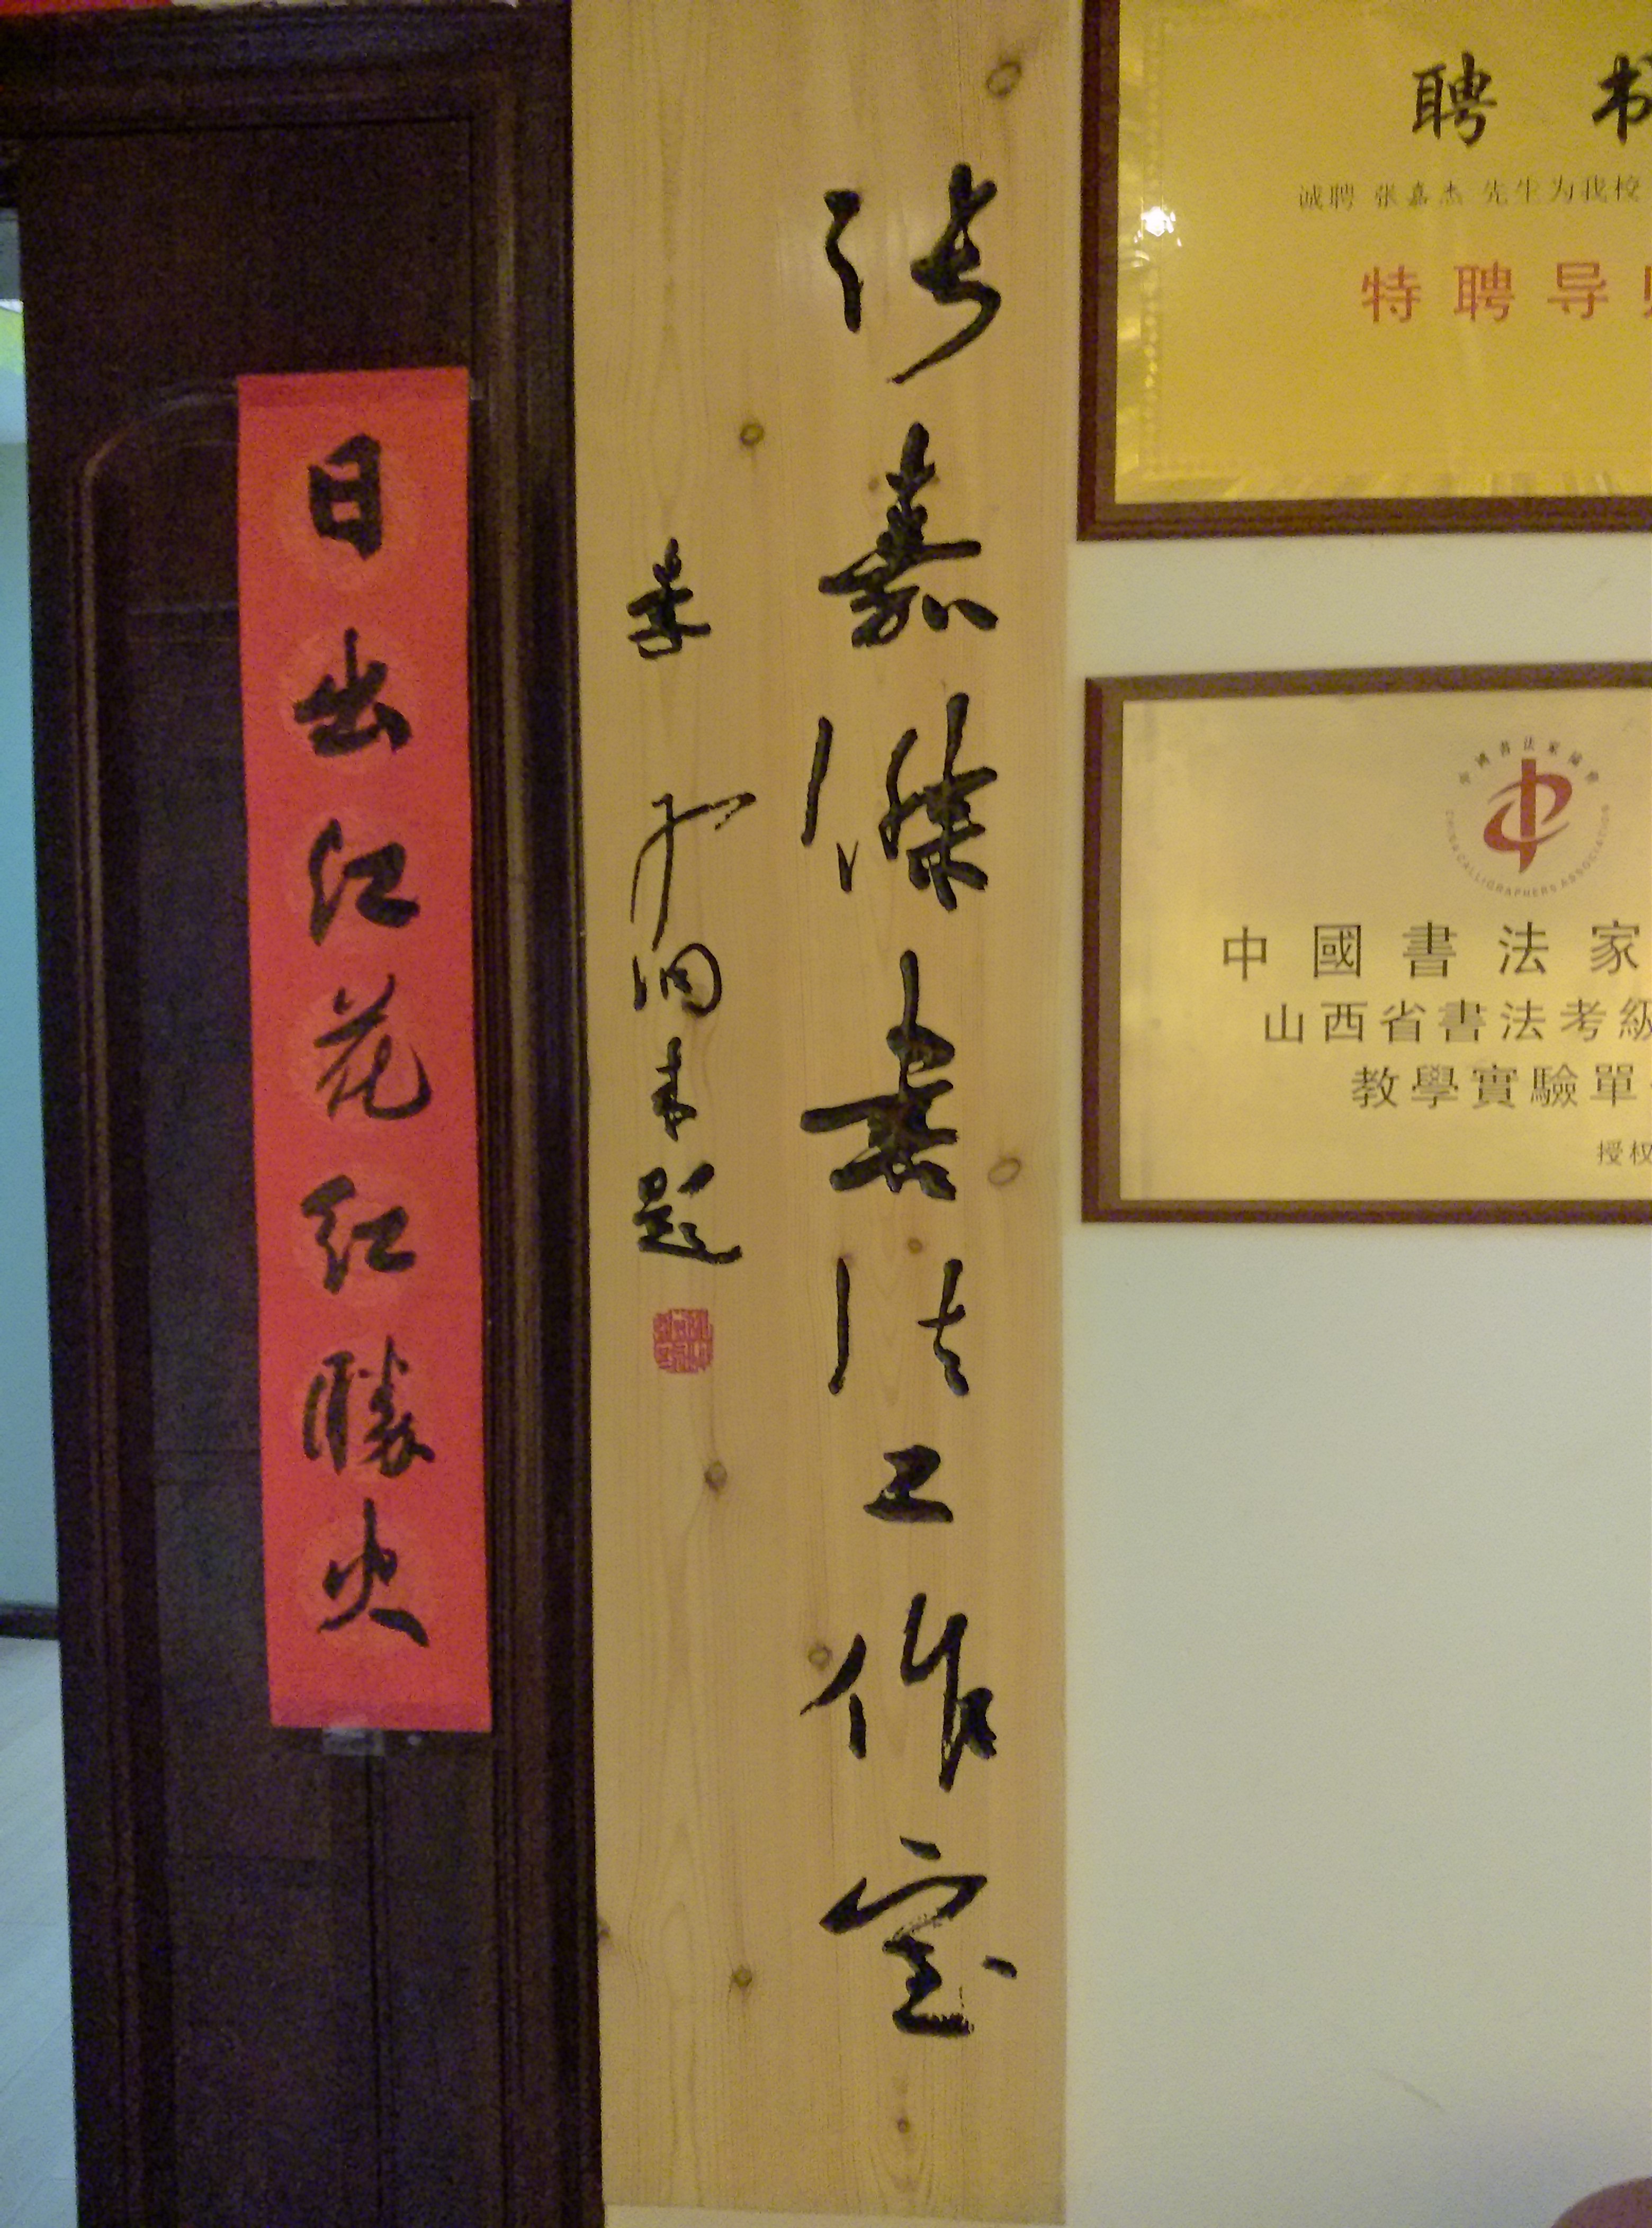 日出江花红勝火
张嘉傑書法工作室
题
聘书
诚聘 张嘉杰 先生为我校
特聘导
中國書法家
CHINA CALLIGRAPHERS ASSOCIATION
中國書法家
山西省書法考級
教學實驗單
授权